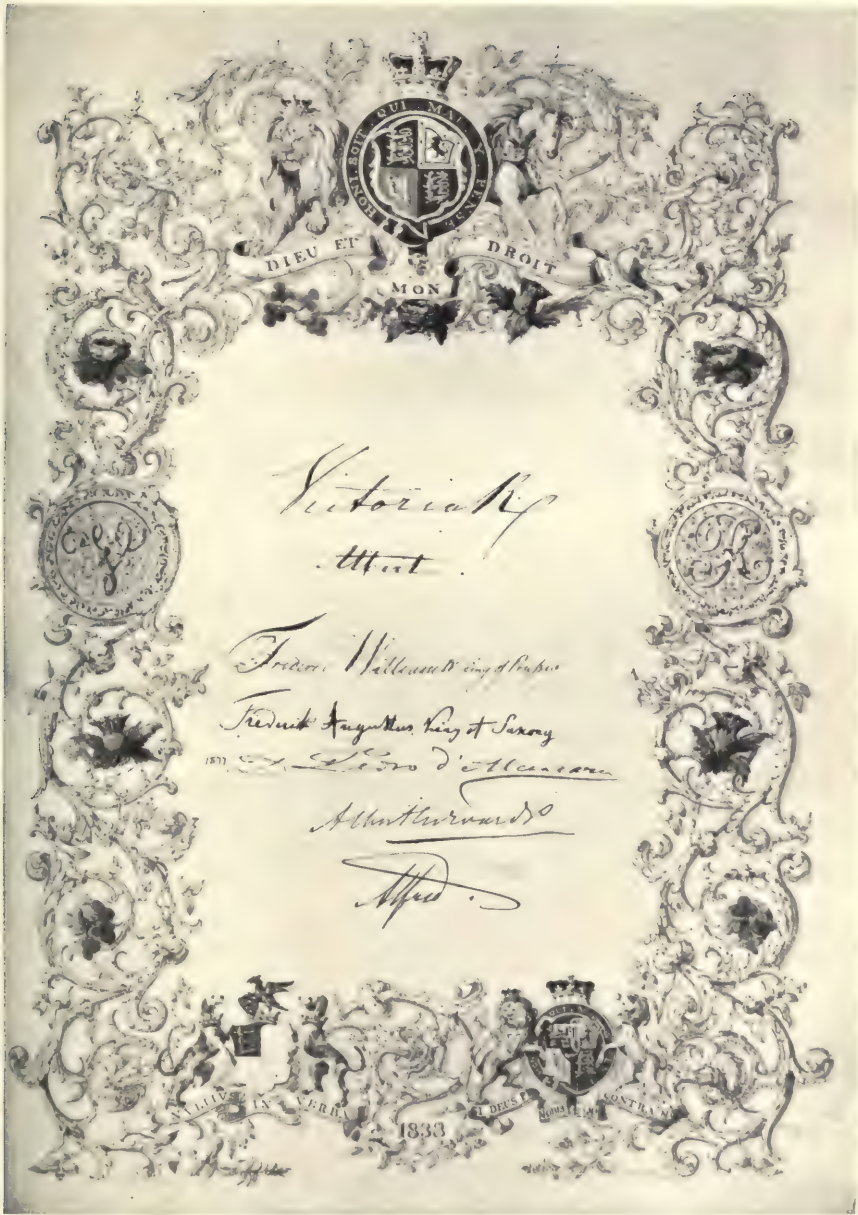 HONI. SOIT. QUI. MAL. Y. PENSE
DIEU ET MON DROIT
VR
Victoria R
Albert.
Frederic William IV King of Prussia
Frederik Augustus King of Saxony
1877 D. Pedro d'Alcantara
Albert Edward
Alfred.
NULLIUS IN VERBA
SI DEUS P NOBIS CONTRA NOS
1833